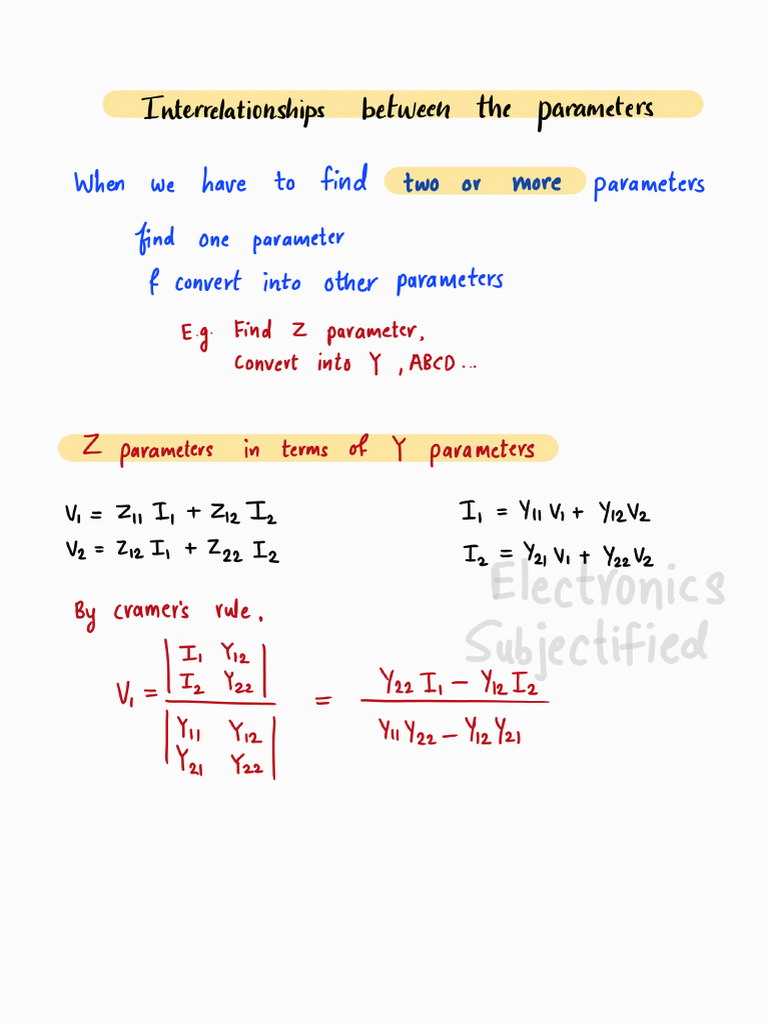 Interrelationships between the parameters
When we have to find two or more parameters
find one parameter
& convert into other parameters
E.g. Find Z parameter,
Convert into Y, ABCD...
Z parameters in terms of Y parameters
V₁ = Z₁₁ I₁ + Z₁₂ I₂
V₂ = Z₁₂ I₁ + Z₂₂ I₂
I₁ = Y₁₁ V₁ + Y₁₂ V₂
I₂ = Y₂₁ V₁ + Y₂₂ V₂
Electronics
Subjectified
By cramer's rule,
V₁ = | I₁ Y₁₂ ; I₂ Y₂₂ | / | Y₁₁ Y₁₂ ; Y₂₁ Y₂₂ | = (Y₂₂ I₁ − Y₁₂ I₂) / (Y₁₁ Y₂₂ − Y₁₂ Y₂₁)